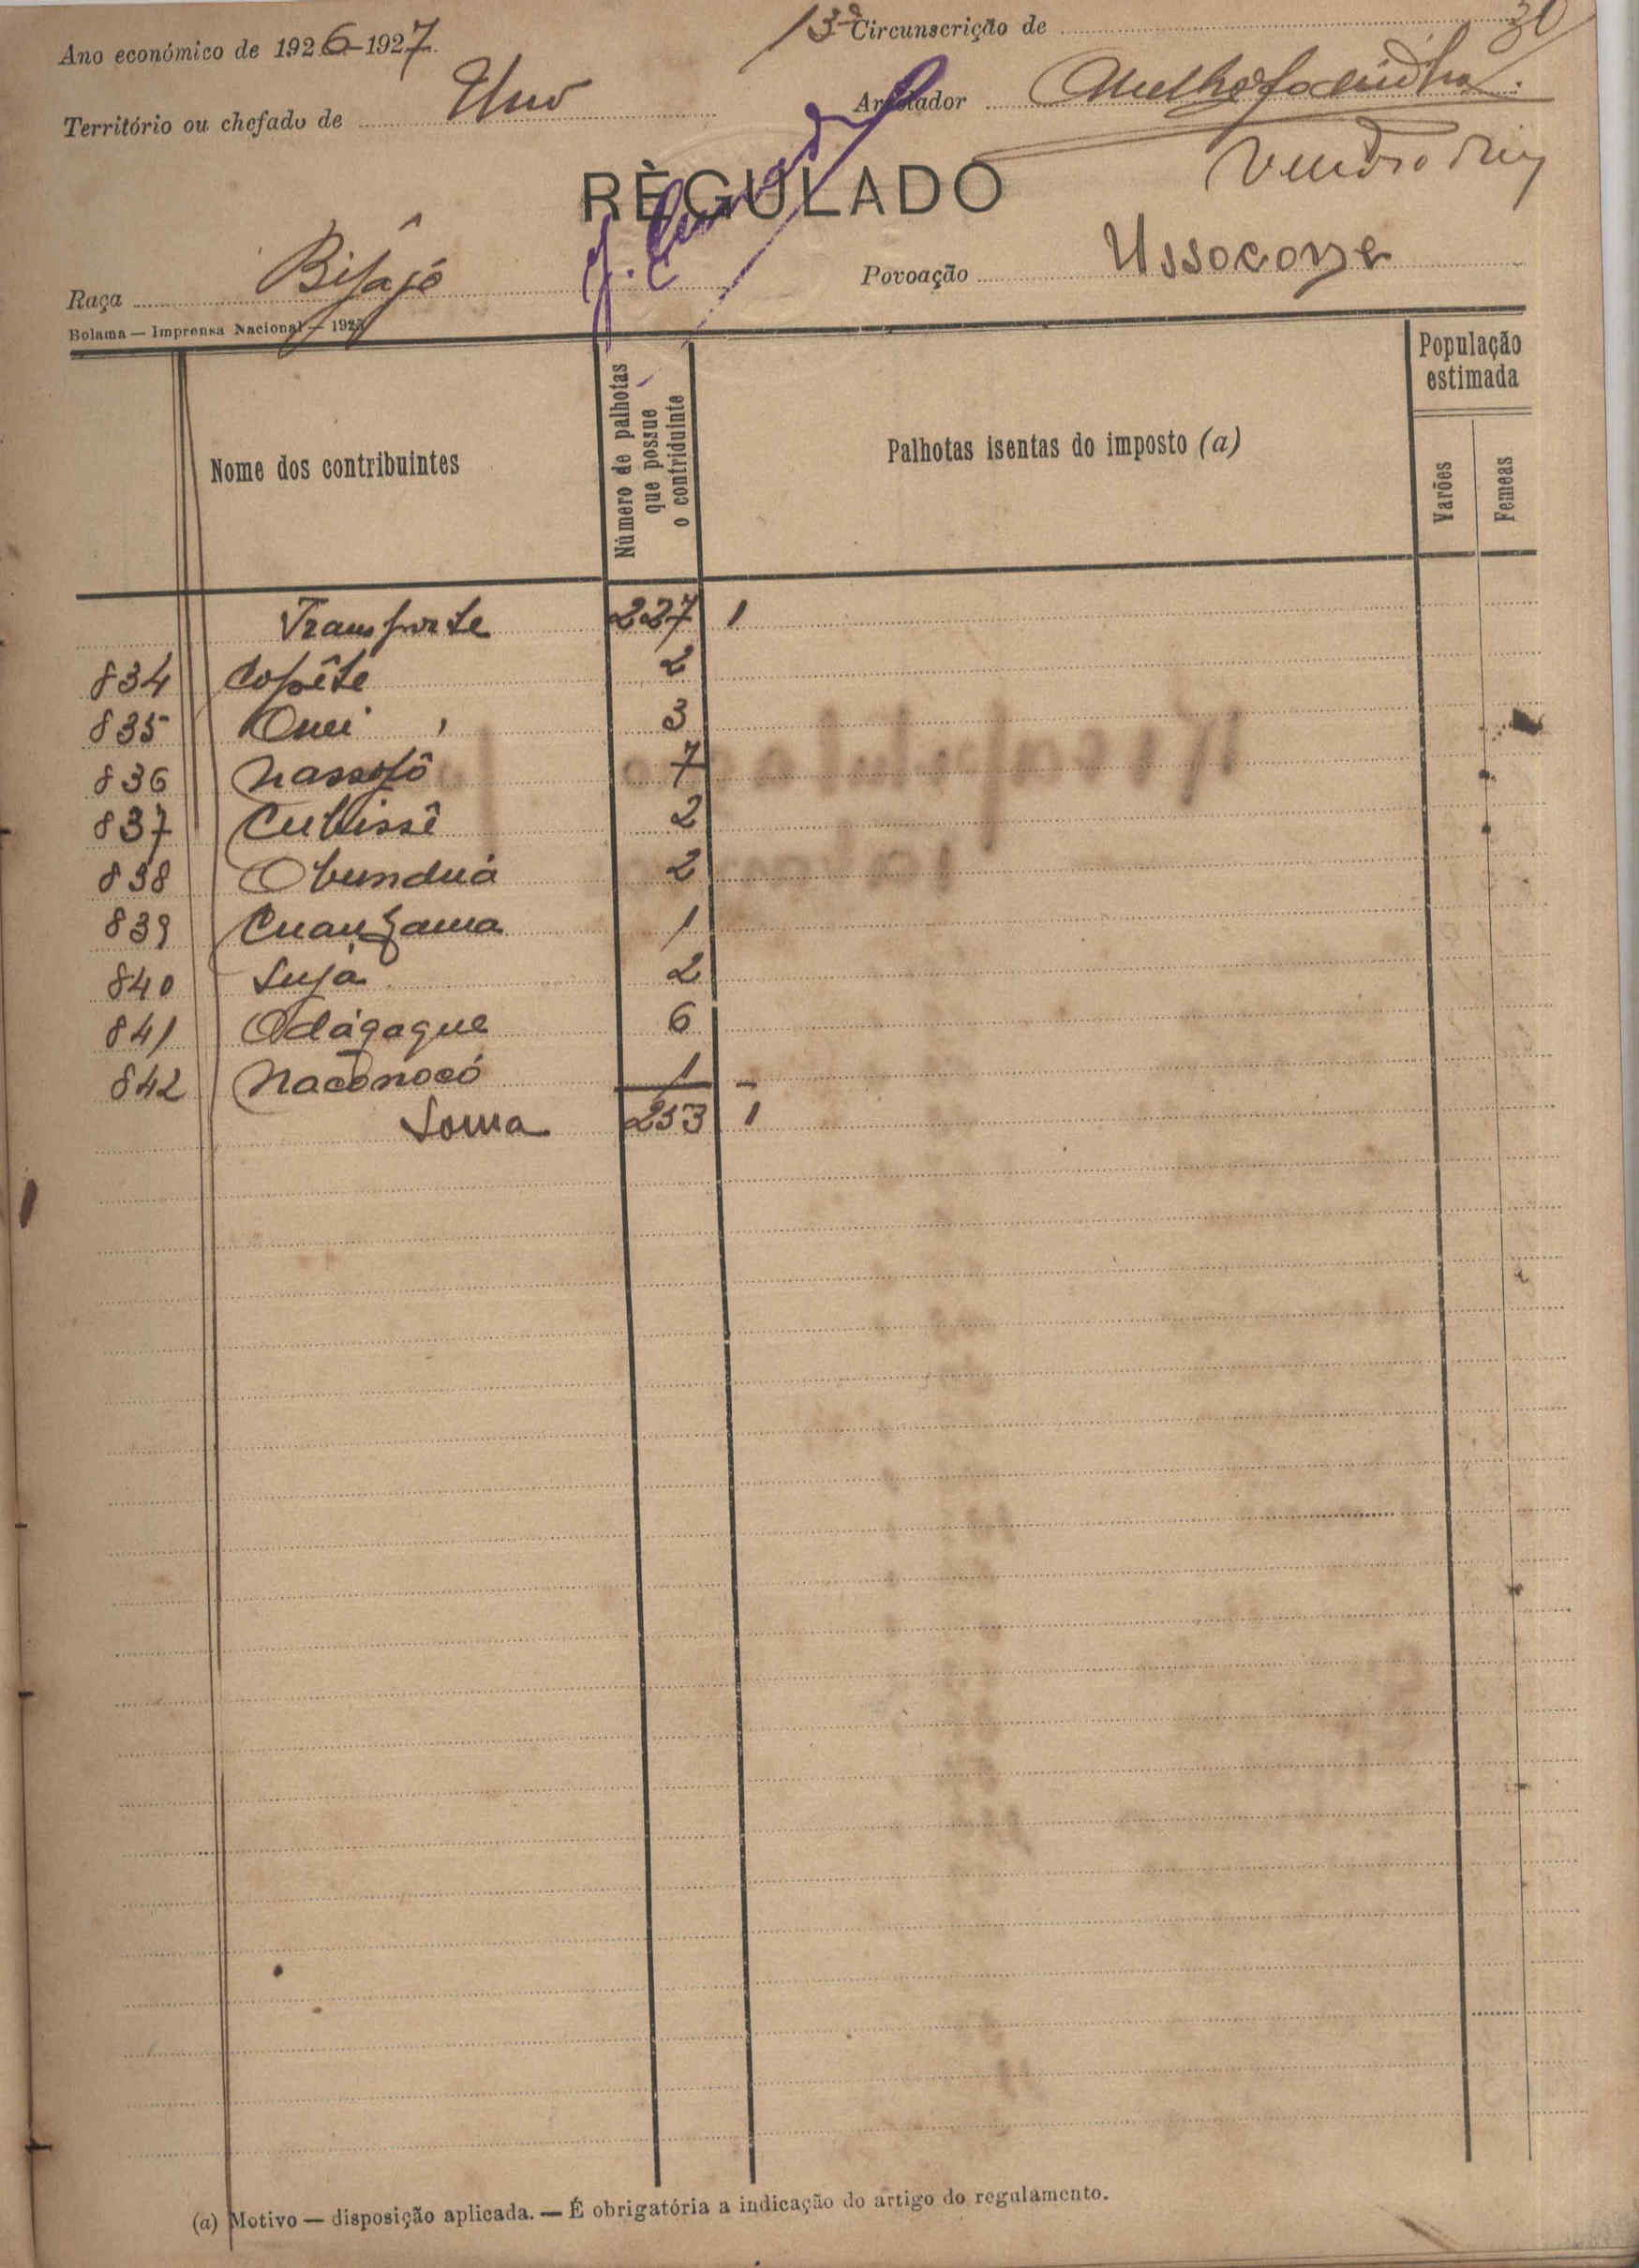 30
Ano económico de 1926-1927.
13ª Circunscrição de
Território ou chefado de Uno
Arrolador
RÈGULADO
Raça Bijagó
Povoação Ussocone
Bolama — Imprensa Nacional — 1925
Nome dos contribuintes
Número de palhotas que possue o contriduinte
Palhotas isentas do imposto (a)
População estimada
Varões
Femeas
Transporte 227 1
834 Copête 2
835 Onei 3
836 Nassopô 7
837 Cubissê 2
838 Obunduá 2
839 Cuanhama 1
840 Sujá 2
841 Odágaque 6
842 Naconocó 1 -
Soma 253 1
(a) Motivo — disposição aplicada. — É obrigatória a indicação do artigo do regulamento.